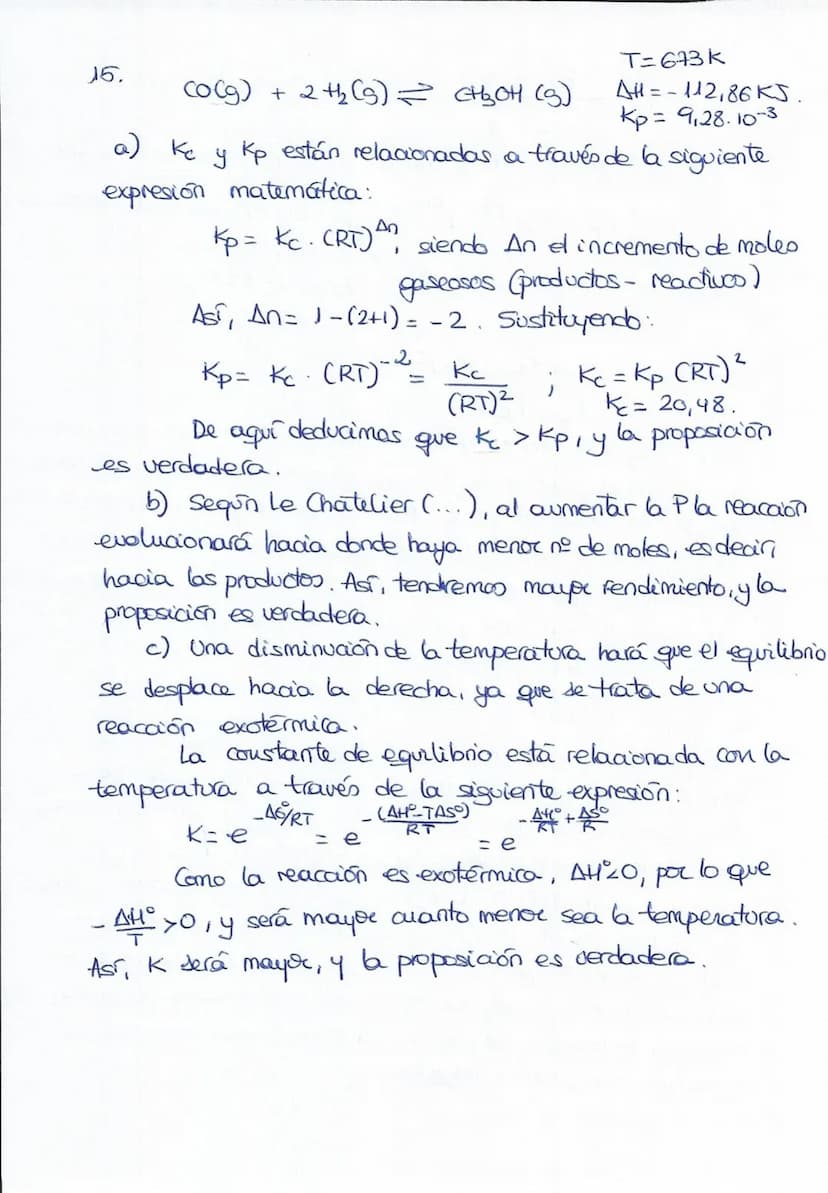 15.
T = 673 K
CO(g) + 2 H₂(g) ⇌ CH₃OH (g)
ΔH = - 112,86 KJ.
Kp = 9,28·10⁻³
a) Kc y Kp están relacionadas a través de la siguiente
expresión matemática:
Kp = Kc · (RT)^Δn, siendo Δn el incremento de moles
gaseosos (productos - reactivos)
Así, Δn = 1 - (2+1) = - 2. Sustituyendo:
Kp = Kc · (RT)⁻² = Kc/(RT)² ; Kc = Kp (RT)²
Kc = 20,48.
De aquí deducimos que Kc > Kp, y la proposición
es verdadera.
b) Según Le Chatelier (...), al aumentar la P la reacción
evolucionará hacia donde haya menor nº de moles, es decir,
hacia los productos. Así, tendremos mayor rendimiento, y la
proposición es verdadera.
c) Una disminución de la temperatura hará que el equilibrio
se desplace hacia la derecha, ya que se trata de una
reacción exotérmica.
La constante de equilibrio está relacionada con la
temperatura a través de la siguiente expresión:
K = e^(-ΔGº/RT) = e^(-(ΔHº-TΔSº)/RT) = e^(-ΔHº/RT + ΔSº/R)
Como la reacción es exotérmica, ΔHº<0, por lo que
- ΔHº/T >0, y será mayor cuanto menor sea la temperatura.
Así, K será mayor, y la proposición es verdadera.